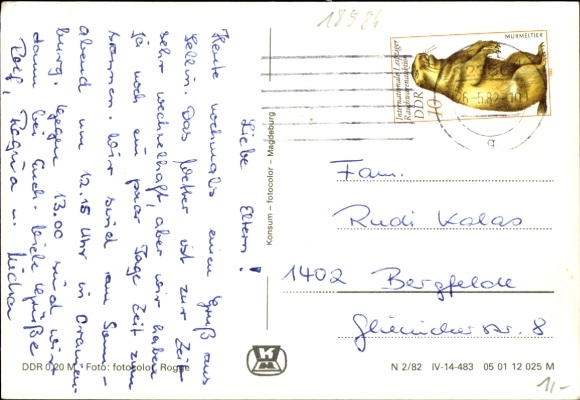 18926
Liebe Eltern!
Heute nochmals einen Gruß aus
Sellin. Das Wetter ist zur Zeit
sehr wechselhaft, aber wir haben
ja noch ein paar Tage Zeit zum
Wir sind am Sonn-
abend um 12.15 Uhr in Oranien-
burg. Gegen 13.00 sind wir
dann bei Euch. Viele Grüße
Rolf, Regina u.
Konsum – fotocolor – Magdeburg
Internationale Leipziger
Rauchwarenauktion
DDR 10
MURMELTIER
Fam.
Rudi Kalas
1402 Bergfelde
Glienicker Str. 8
DDR 0,20 M · Foto: fotocolor, Rogge
N 2/82 IV-14-483 05 01 12 025 M
1,-